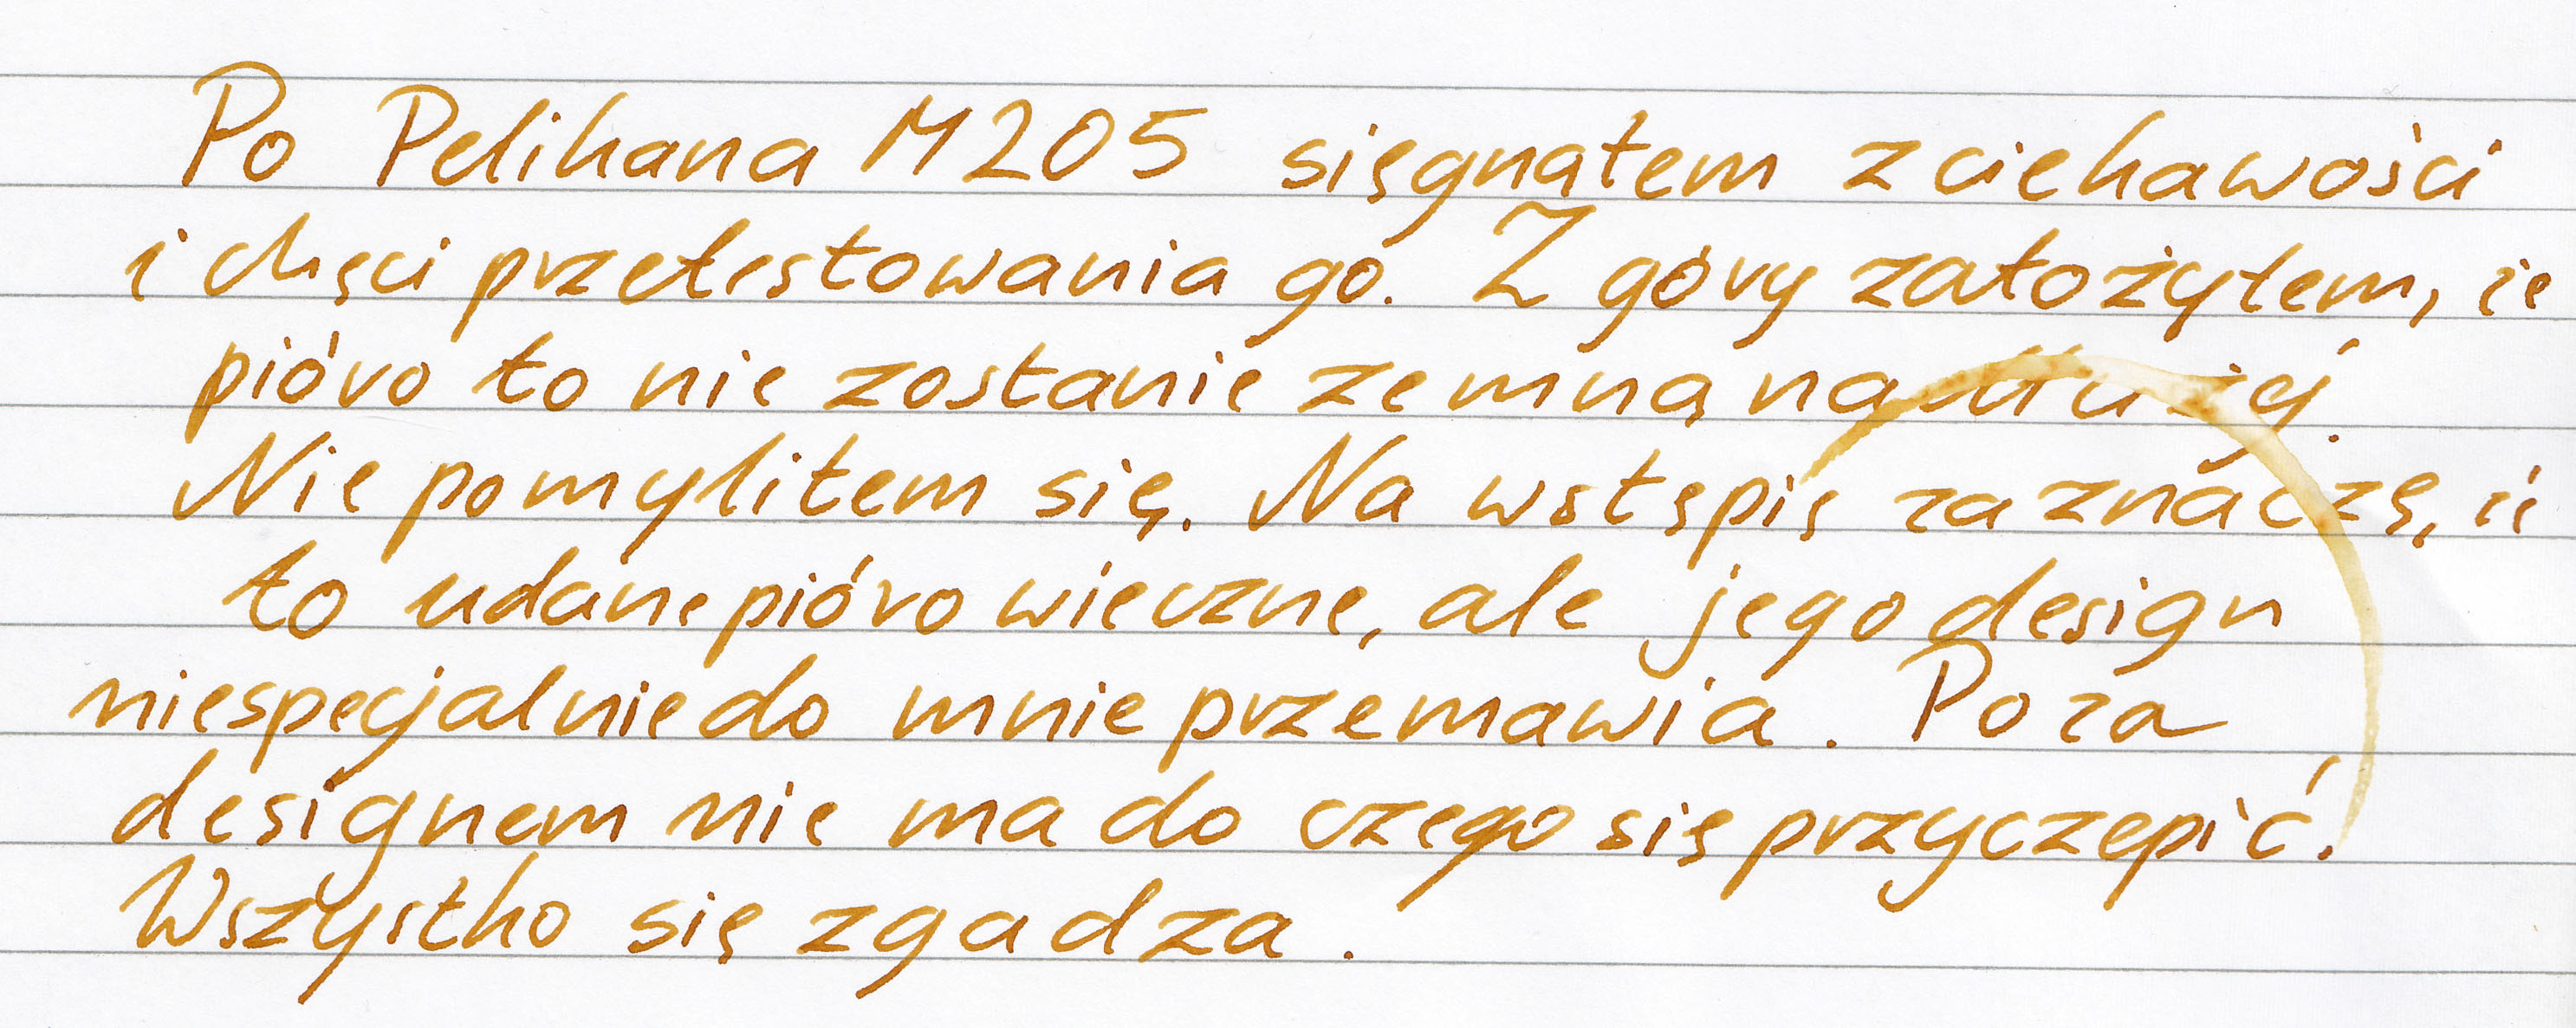 Po Pelikana M205 sięgnąłem z ciekawości
i chęci przetestowania go. Z góry założyłem, że
pióro to nie zostanie ze mną na dłużej.
Nie pomyliłem się. Na wstępie zaznaczę, iż
to udane pióro wieczne, ale jego design
niespecjalnie do mnie przemawia. Poza
designem nie ma do czego się przyczepić.
Wszystko się zgadza.